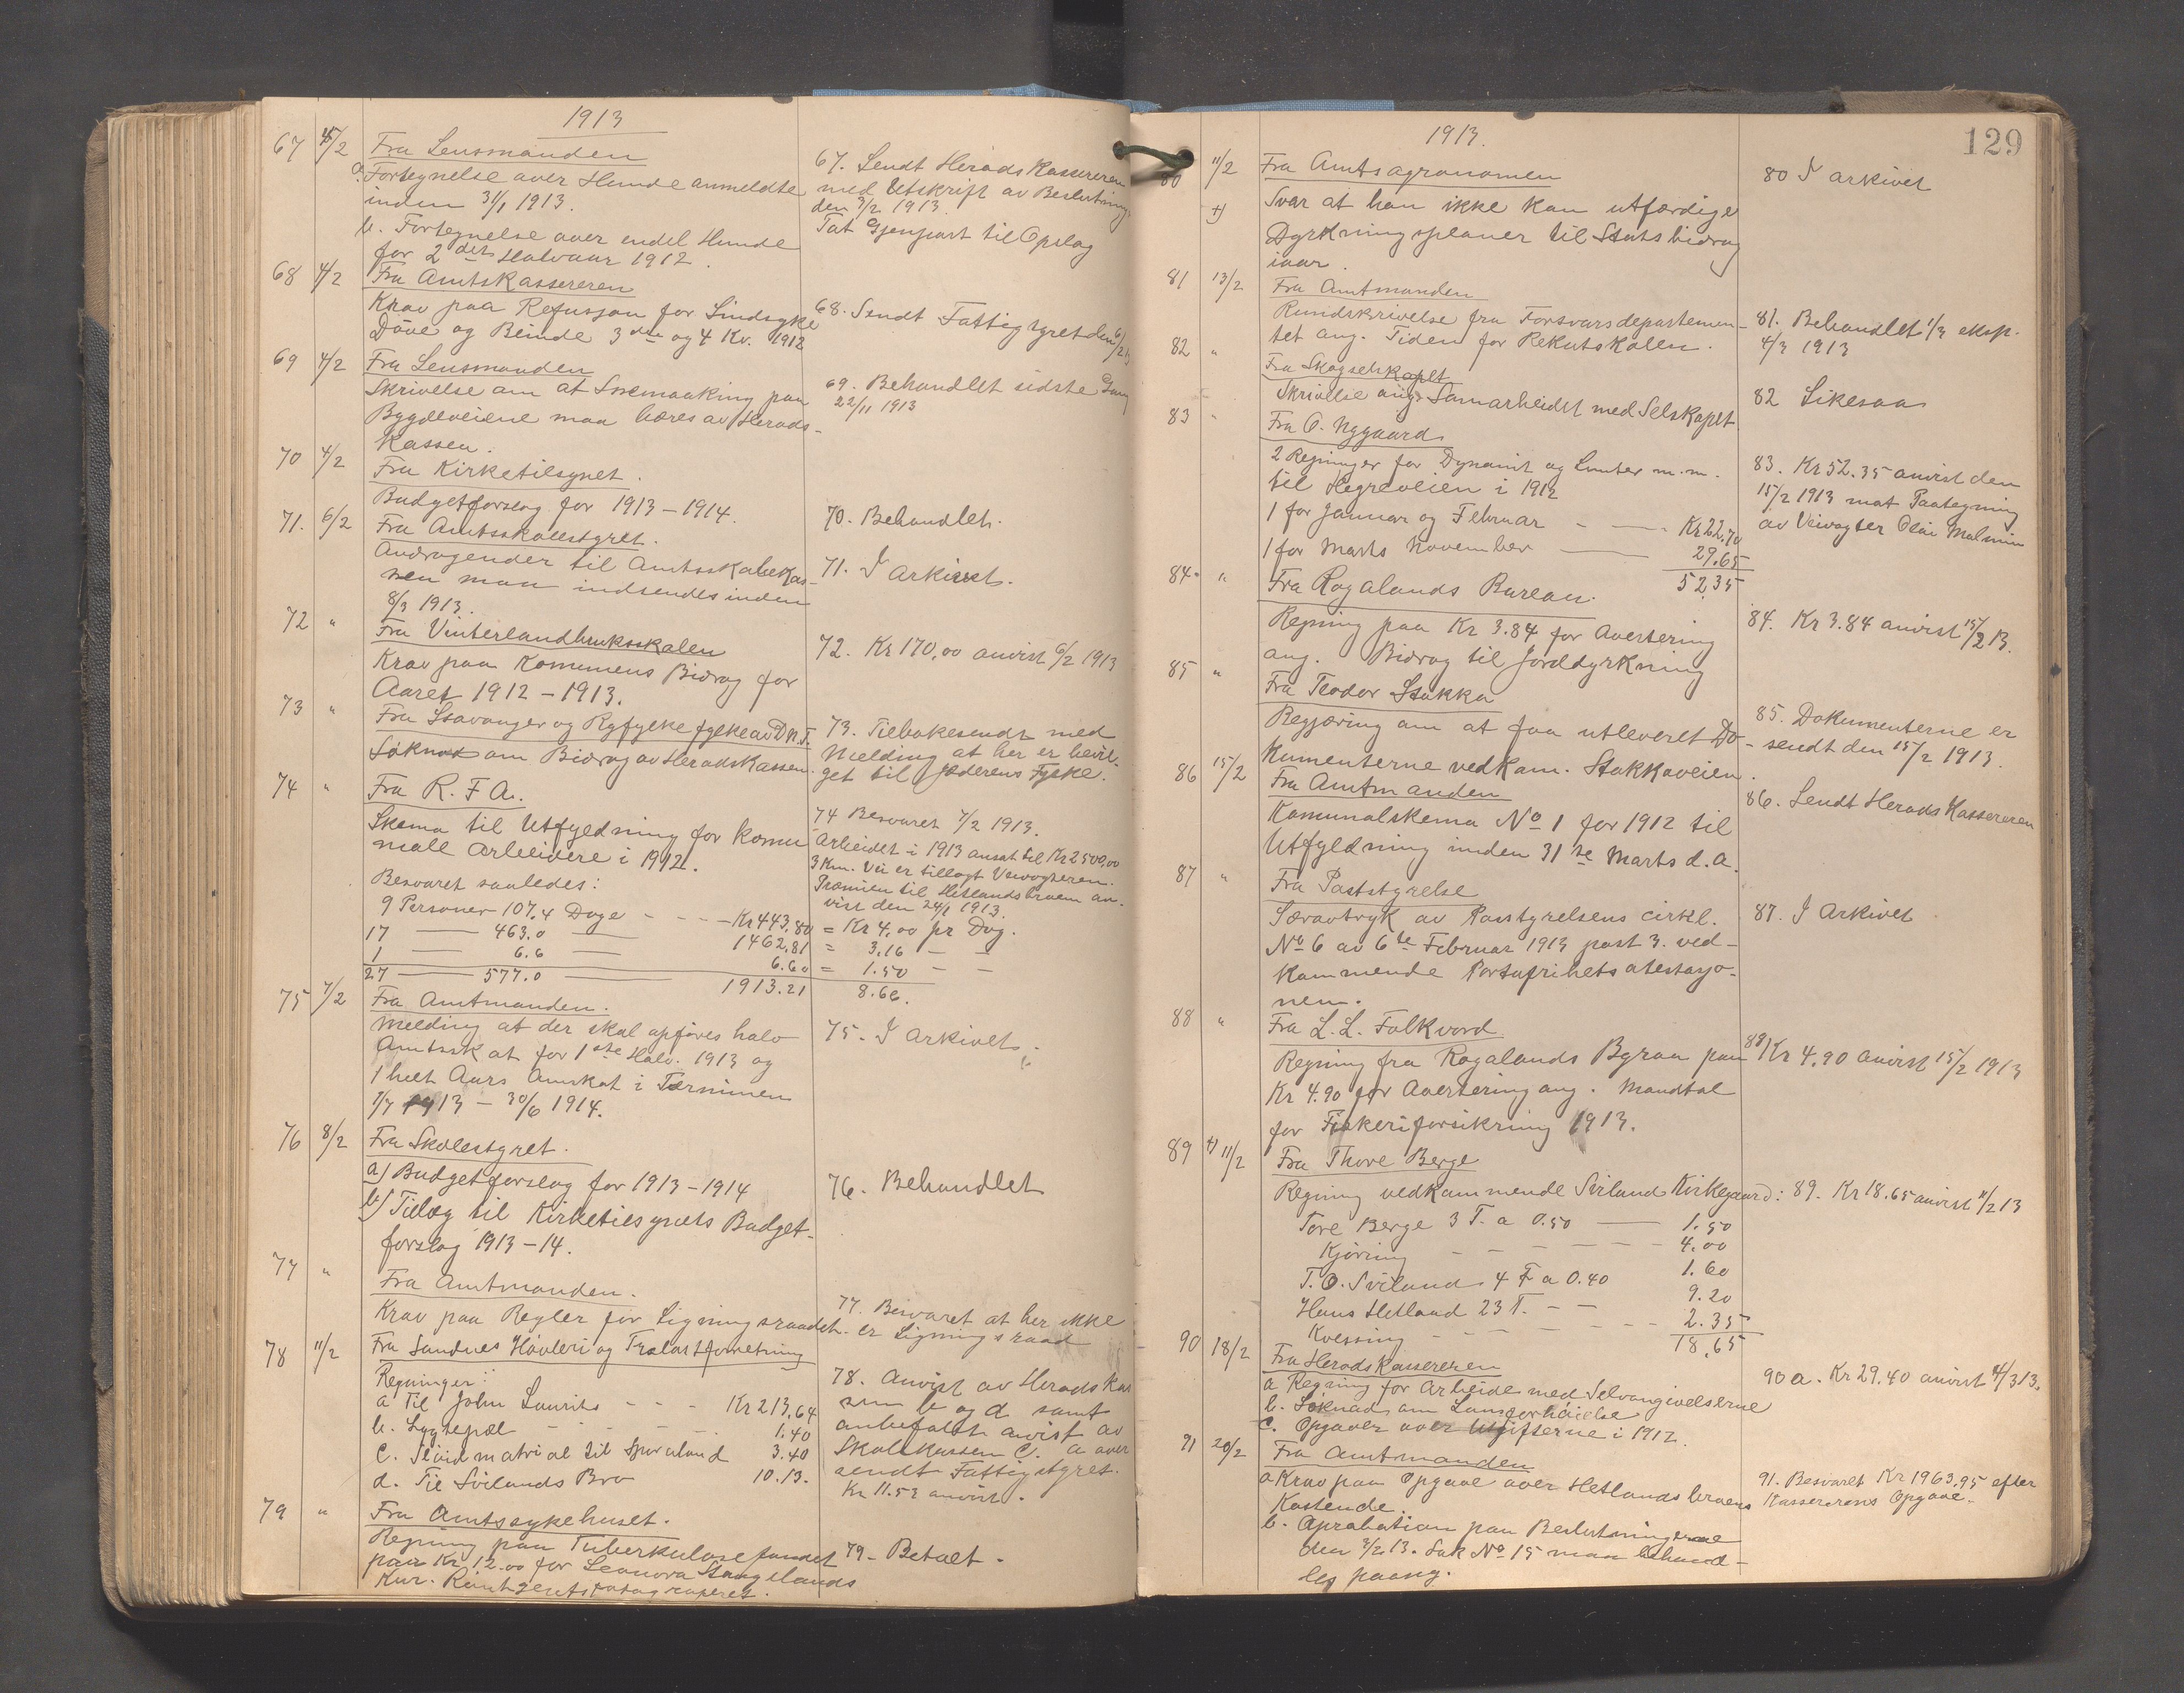 1913
67 4/2 Fra Lensmanden
a. Fortegnelse over Hunde anmeldte
inden 31/1 1913.
b. Fortegnelse over endel Hunde
for 2det Halvaar 1912.
67. Sendt Heradskassereren
med Utskrift av Beslutning
den 3/2 1913.
Tat Gjenpart til Opslag
68 4/2 Fra Amtskassereren
Krav paa Refusjon for Sindsyke
Døve og Blinde 3die og 4 Kv. 1912
68. Sendt Fattigstyret den 6/2 13
69 4/2 Fra Lensmanden
Skrivelse om at Snemaaking paa
Bygdeveiene maa bæres av Herads-
kassen.
69. Behandlet sidste Gang
22/11 1913
70 4/2 Fra Kirketilsynet.
Budgetforslag for 1913 – 1914.
70. Behandlet.
71. 6/2 Fra Amtsskolestyret.
Andragender til Amtsskolekas-
sen maa indsendes inden
8/3 1913.
71. I arkivet.
72 " Fra Vinterlandbruksskolen
Krav paa Komunens Bidrag for
Aaret 1912 – 1913.
72. Kr 170,00 anvist 6/2 1913
73 " Fra Stavanger og Ryfylke fylke av D.N.T.
Søknad om Bidrag av Heradskassen.
73. Tilbakesendt med
Melding at her er bevil-
get til Jæderens Fylke.
74 " Fra R. F. A.
Skema til Utfyldning for komu
nale Arbeidere i 1912.
Besvaret saaledes:
9 Personer 107,4 Dage – – – Kr 443,80 = Kr 4,00 pr Dag.
17 — 463.0 — 1462,81 = 3,16 – –
1 — 6.6 — 6.60 = 1.50 – –
27 — 577.0 — 1913.21 8.66.
74 Besvaret 7/2 1913.
Arbeidet i 1913 ansat til Kr 2500,00
3 Km. Vei er tillagt Veivogteren.
Præmien til Hetlandsbruen an-
vist den 24/1 1913.
75 7/2 Fra Amtmanden.
Melding at der skal opføres halv
Amtsskat for 1ste Halv. 1913 og
1 helt Aars Amskat i Terminen
1/7 1913 – 30/6 1914.
75. I arkivet.
76 8/2 Fra Skolestyret.
a) Budgetforslag for 1913 – 1914
b) Tillæg til Kirketilsynets Budget-
forslag 1913 – 14.
76. Behandlet
77 " Fra Amtmanden.
Krav paa Regler for Ligningsraadet.
77. Besvaret at her ikke
er Ligningsraad
78 11/2 Fra Sandnes Høvleri og Trælastforretning
Regninger:
a Til John Lauritz – – – Kr 213,64
b. Lygtepæl – – – 1.40
c. Sløidmatrial til Spuraland 3.40
d. Til Svilands Bro 10.13.
78. Anvist av Heradskas
sen b og d samt
anbefalet anvist av
Skolekassen C. a over
sendt Fattigstyret.
Kr 11.53 anvist.
79 " Fra Amtssykehuset.
Regning paa Tuberkulosefondet
paa Kr. 12.00 for Leonora Stangelands
Kur.
79 – Betalt.
129
1913.
80 11/2 Fra Amtsagronomen
Svar at han ikke kan utfærdige
Dyrkningsplaner til Statsbidrag
iaar.
80 I arkivet
81 13/2 Fra Amtmanden
Rundskrivelse fra Forsvarsdepartemen-
tet ang. Tiden for Rekrutskolen.
81. Behandlet 1/3 eksp.
4/3 1913
82 " Fra Skogselskapet
Skrivelse ang. Samarbeidet med Selskapet
82 Likesaa
83 " Fra O. Nygaard
2 Regninger for Dynamit og Lunter m.m.
til Hegreveien i 1912
1 for Januar og Februar – — Kr 22,70
1 for Marts November — 29.65
52,35
83. Kr 52.35 anvist den
15/2 1913 mot Paategning
av Veivogter Olai Malmin
84. " Fra Rogalands Bureau.
Regning paa Kr 3.84 for Avertering
ang. Bidrag til Jorddyrkning
84. Kr 3.84 anvist 15/2 13.
85 " Fra Teodor Stokka
Begjæring om at faa utleveret Do-
kumenterne vedkom. Stokkaveien.
85. Dokumenterne er
sendt den 15/2 1913.
86 15/2 Fra Amtmanden
Komunalskema No 1 for 1912 til
Utfyldning inden 31te Marts d.a.
86. Sendt Heradskassereren
87 " Fra Poststyrelse
Særavtryk av Poststyrelsens cirkl.
No 6 av 6te Februar 1913 post 3. ved-
kommende Portofrihetsatestasjo-
nen.
87. I Arkivet
88 " Fra L. L. Folkvord
Regning fra Rogalands Byraa paa
Kr 4.90 for Avertering ang. Mandtal
for Fiskeriforsikring 1913.
88) Kr 4,90 anvist 15/2 1913
89 11/2 Fra Thore Berge
Regning vedkommende Sviland Kirkegaard:
Tore Berge 3 T. a 0.50 — 1.50
Kjøring – – – – – 4.00
T. O. Sviland 4 T a 0.40 1.60
Hans Hetland 23 T. – – 9.20
Kvessing – – – – – 2.35
18,65
89. Kr 18.65 anvist 11/2 13
90 18/2 Fra Heradskassereren
a Regning for Arbeide med Selvangivelserne
b. Søknad om Lønsforhøielse
c. Opgaver over Utgifterne i 1912.
90 a. Kr 29.40 anvist 4/3 13.
91 20/2 Fra Amtmanden
a Krav paa Opgave over Hetlandsbruens
Kostende.
b. Aprobation paa Beslutningerne
den 3/2 13. Sak No 15 maa behand-
les paany.
91. Besvaret Kr 1963,95 efter
Kassererens Opgave.